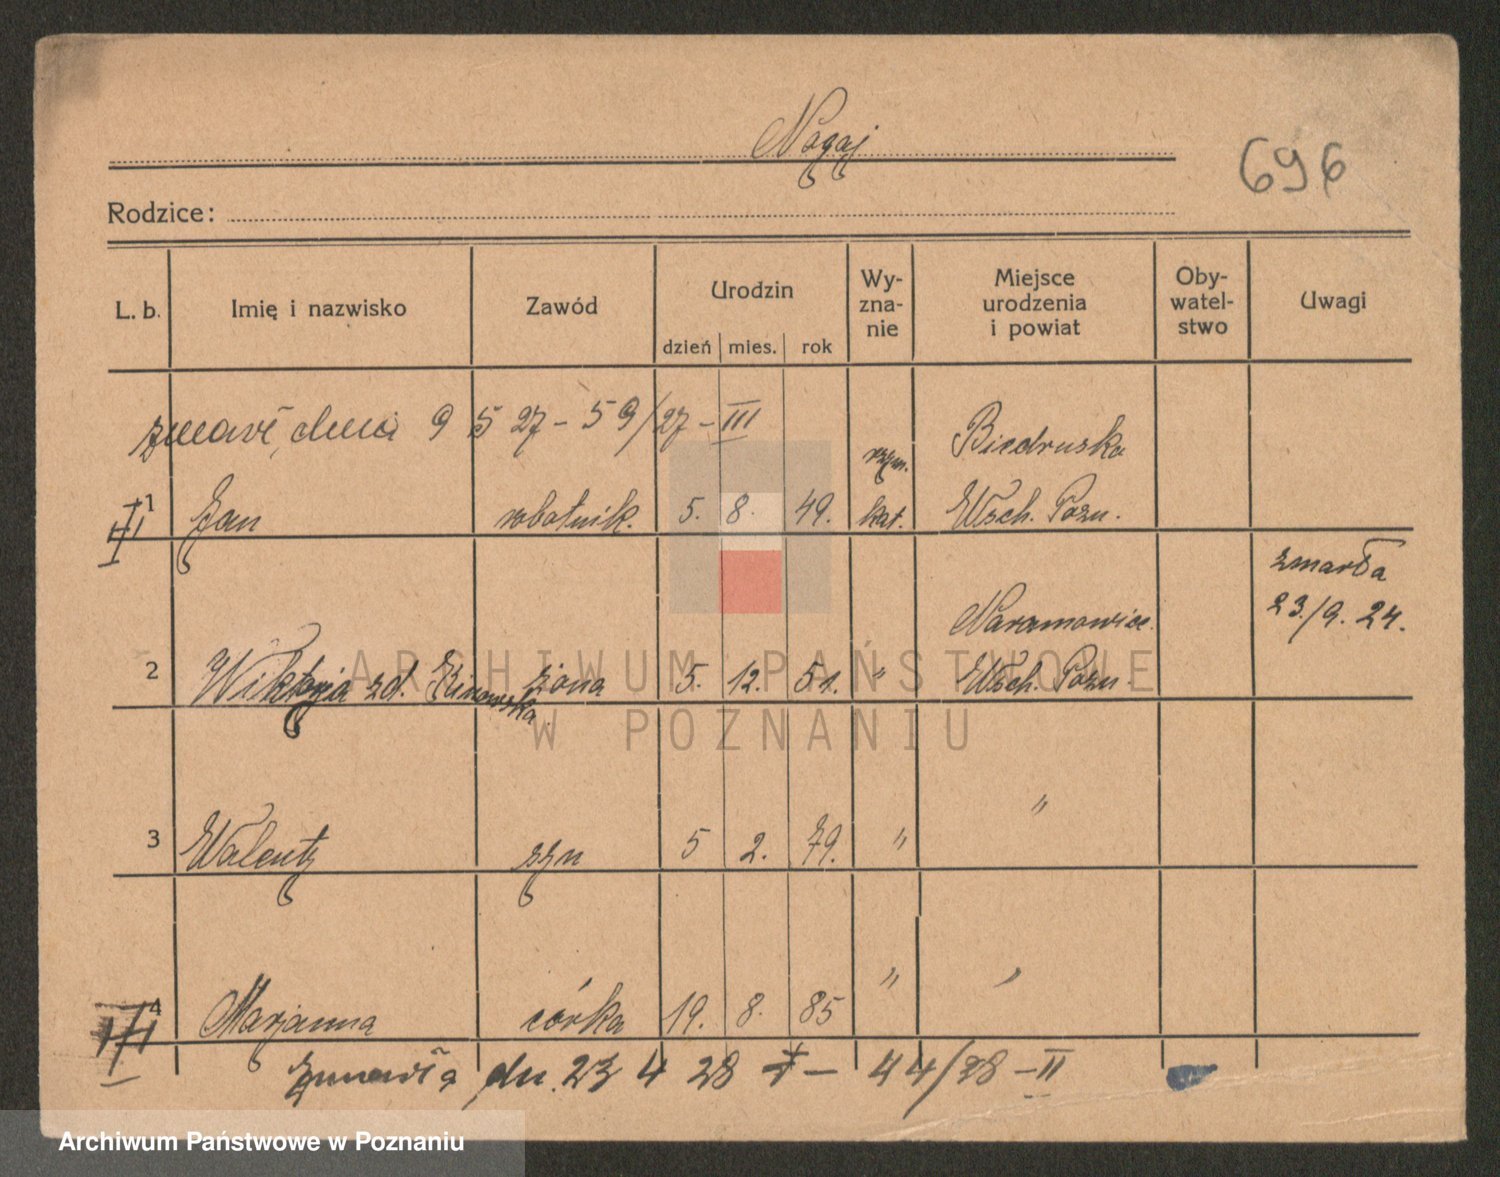 Nogaj
696
Rodzice:
L. b. Imię i nazwisko Zawód Urodzin dzień mies. rok Wy-zna-nie Miejsce urodzenia i powiat Oby-watel-stwo Uwagi
zmarł dnia 9 5 27 - 59/27 - III
Biedrusko
rzym.
1 Jan robotnik. 5. 8. 49. kat. Wsch. Pozn.
zmarła
23./9. 24.
Naramowice.
2 Wiktorja zd. żona 5. 12. 51. " Wsch. Pozn.
"
3 Walenty syn 5 2. 79. "
4 Marjanna córka 19. 8. 85 " "
zmarła dn. 23 4 28 - 44/28 - II
ARCHIWUM PAŃSTWOWE
W POZNANIU
Archiwum Państwowe w Poznaniu